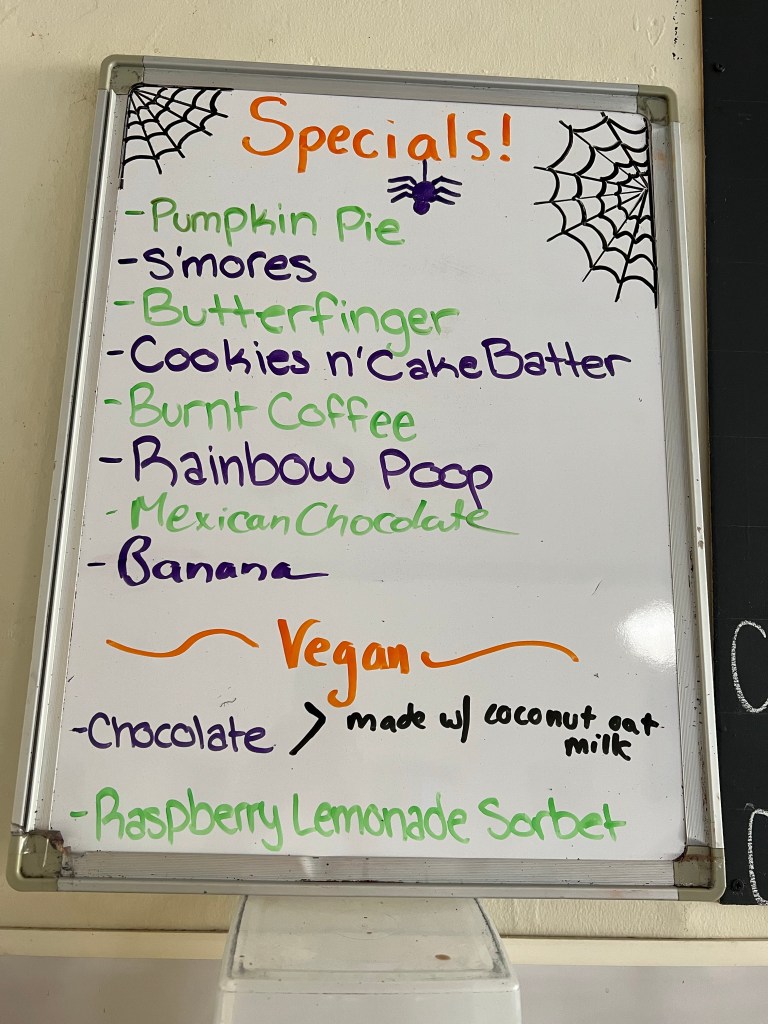 Specials!
-Pumpkin Pie
-S'mores
-Butterfinger
-Cookies n' Cake Batter
-Burnt Coffee
-Rainbow Poop
-Mexican Chocolate
-Banana
Vegan
-Chocolate > made w/ coconut oat
milk
-Raspberry Lemonade Sorbet